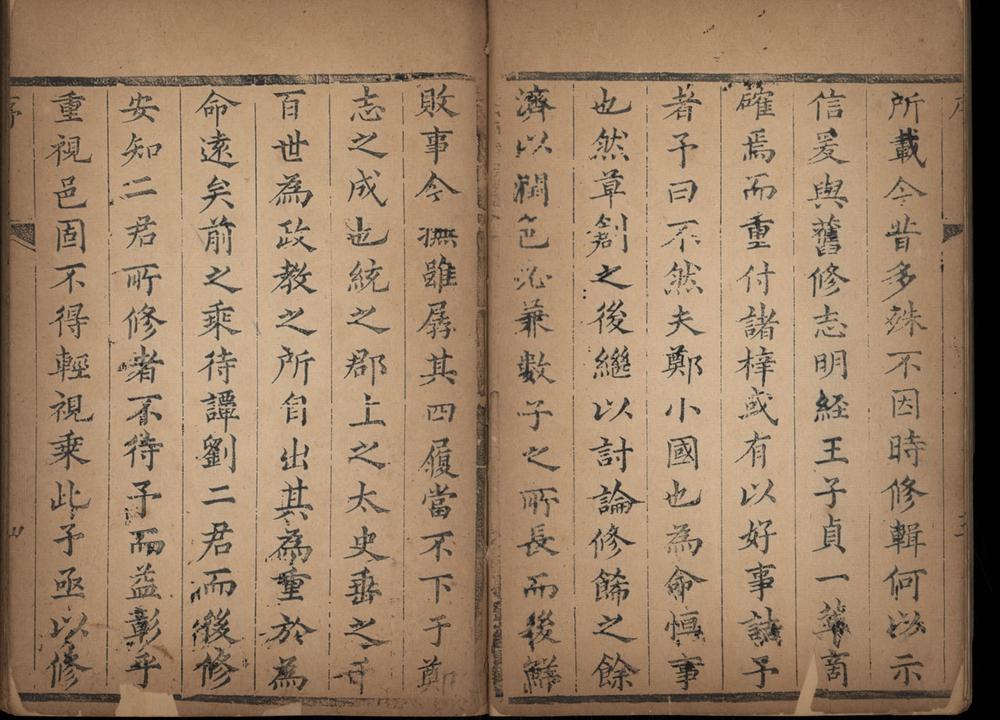 所載今昔多殊不因時修輯何以示
信爰與舊修志明經王子貞一
確焉而重付諸梓或有以好事誚予
者予曰不然夫鄭小國也為命恒事
也然草創之後繼以討論修餙之餘
濟以潤色兼數子之所長而後鮮
敗事今撫雖孱其四履當不下于鄭
志之成也統之郡上之太史垂之
百世為政教之所自出其為重於為
命遠矣前之乘待譚劉二君而後修
安知二君所修者不待予而益彰乎
重視邑固不得輕視乘此予亟以修
序